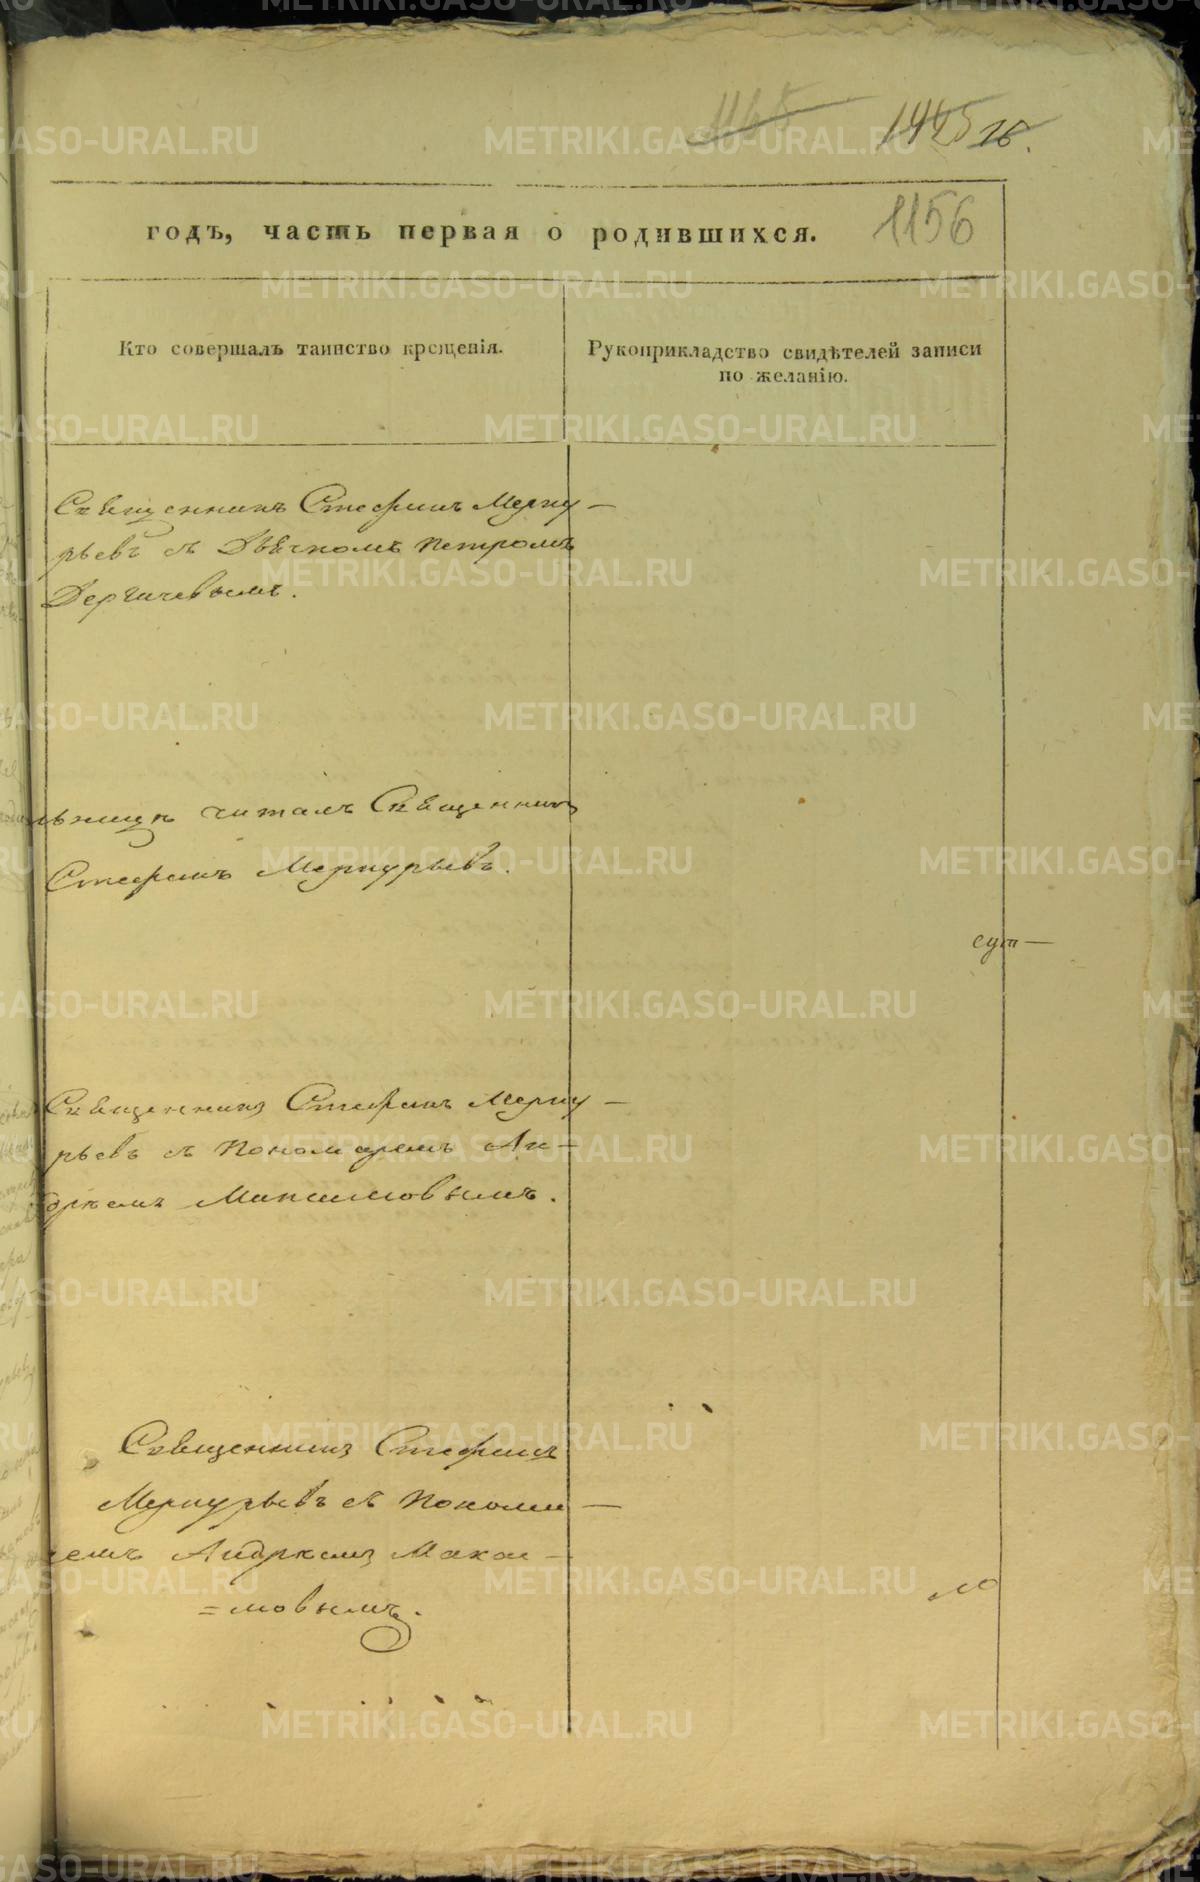 1445 16.
годъ, часть первая о родившихся. 1156
Кто совершалъ таинство крещенія.
Рукоприкладство свидѣтелей записи
по желанію.
Священникъ Стефанъ Мерку—
рьевъ съ Дьячкомъ Петромъ
Дергачевымъ.
читалъ Священникъ
Стефанъ Меркурьевъ.
сут—
Священникъ Стефанъ Мерку—
рьевъ съ Пономаремъ Ан—
дреемъ Максимовымъ.
Священникъ Стефанъ
Меркурьевъ съ Понома—
ремъ Андреемъ Макси—
=мовымъ.
METRIKI.GASO-URAL.RU